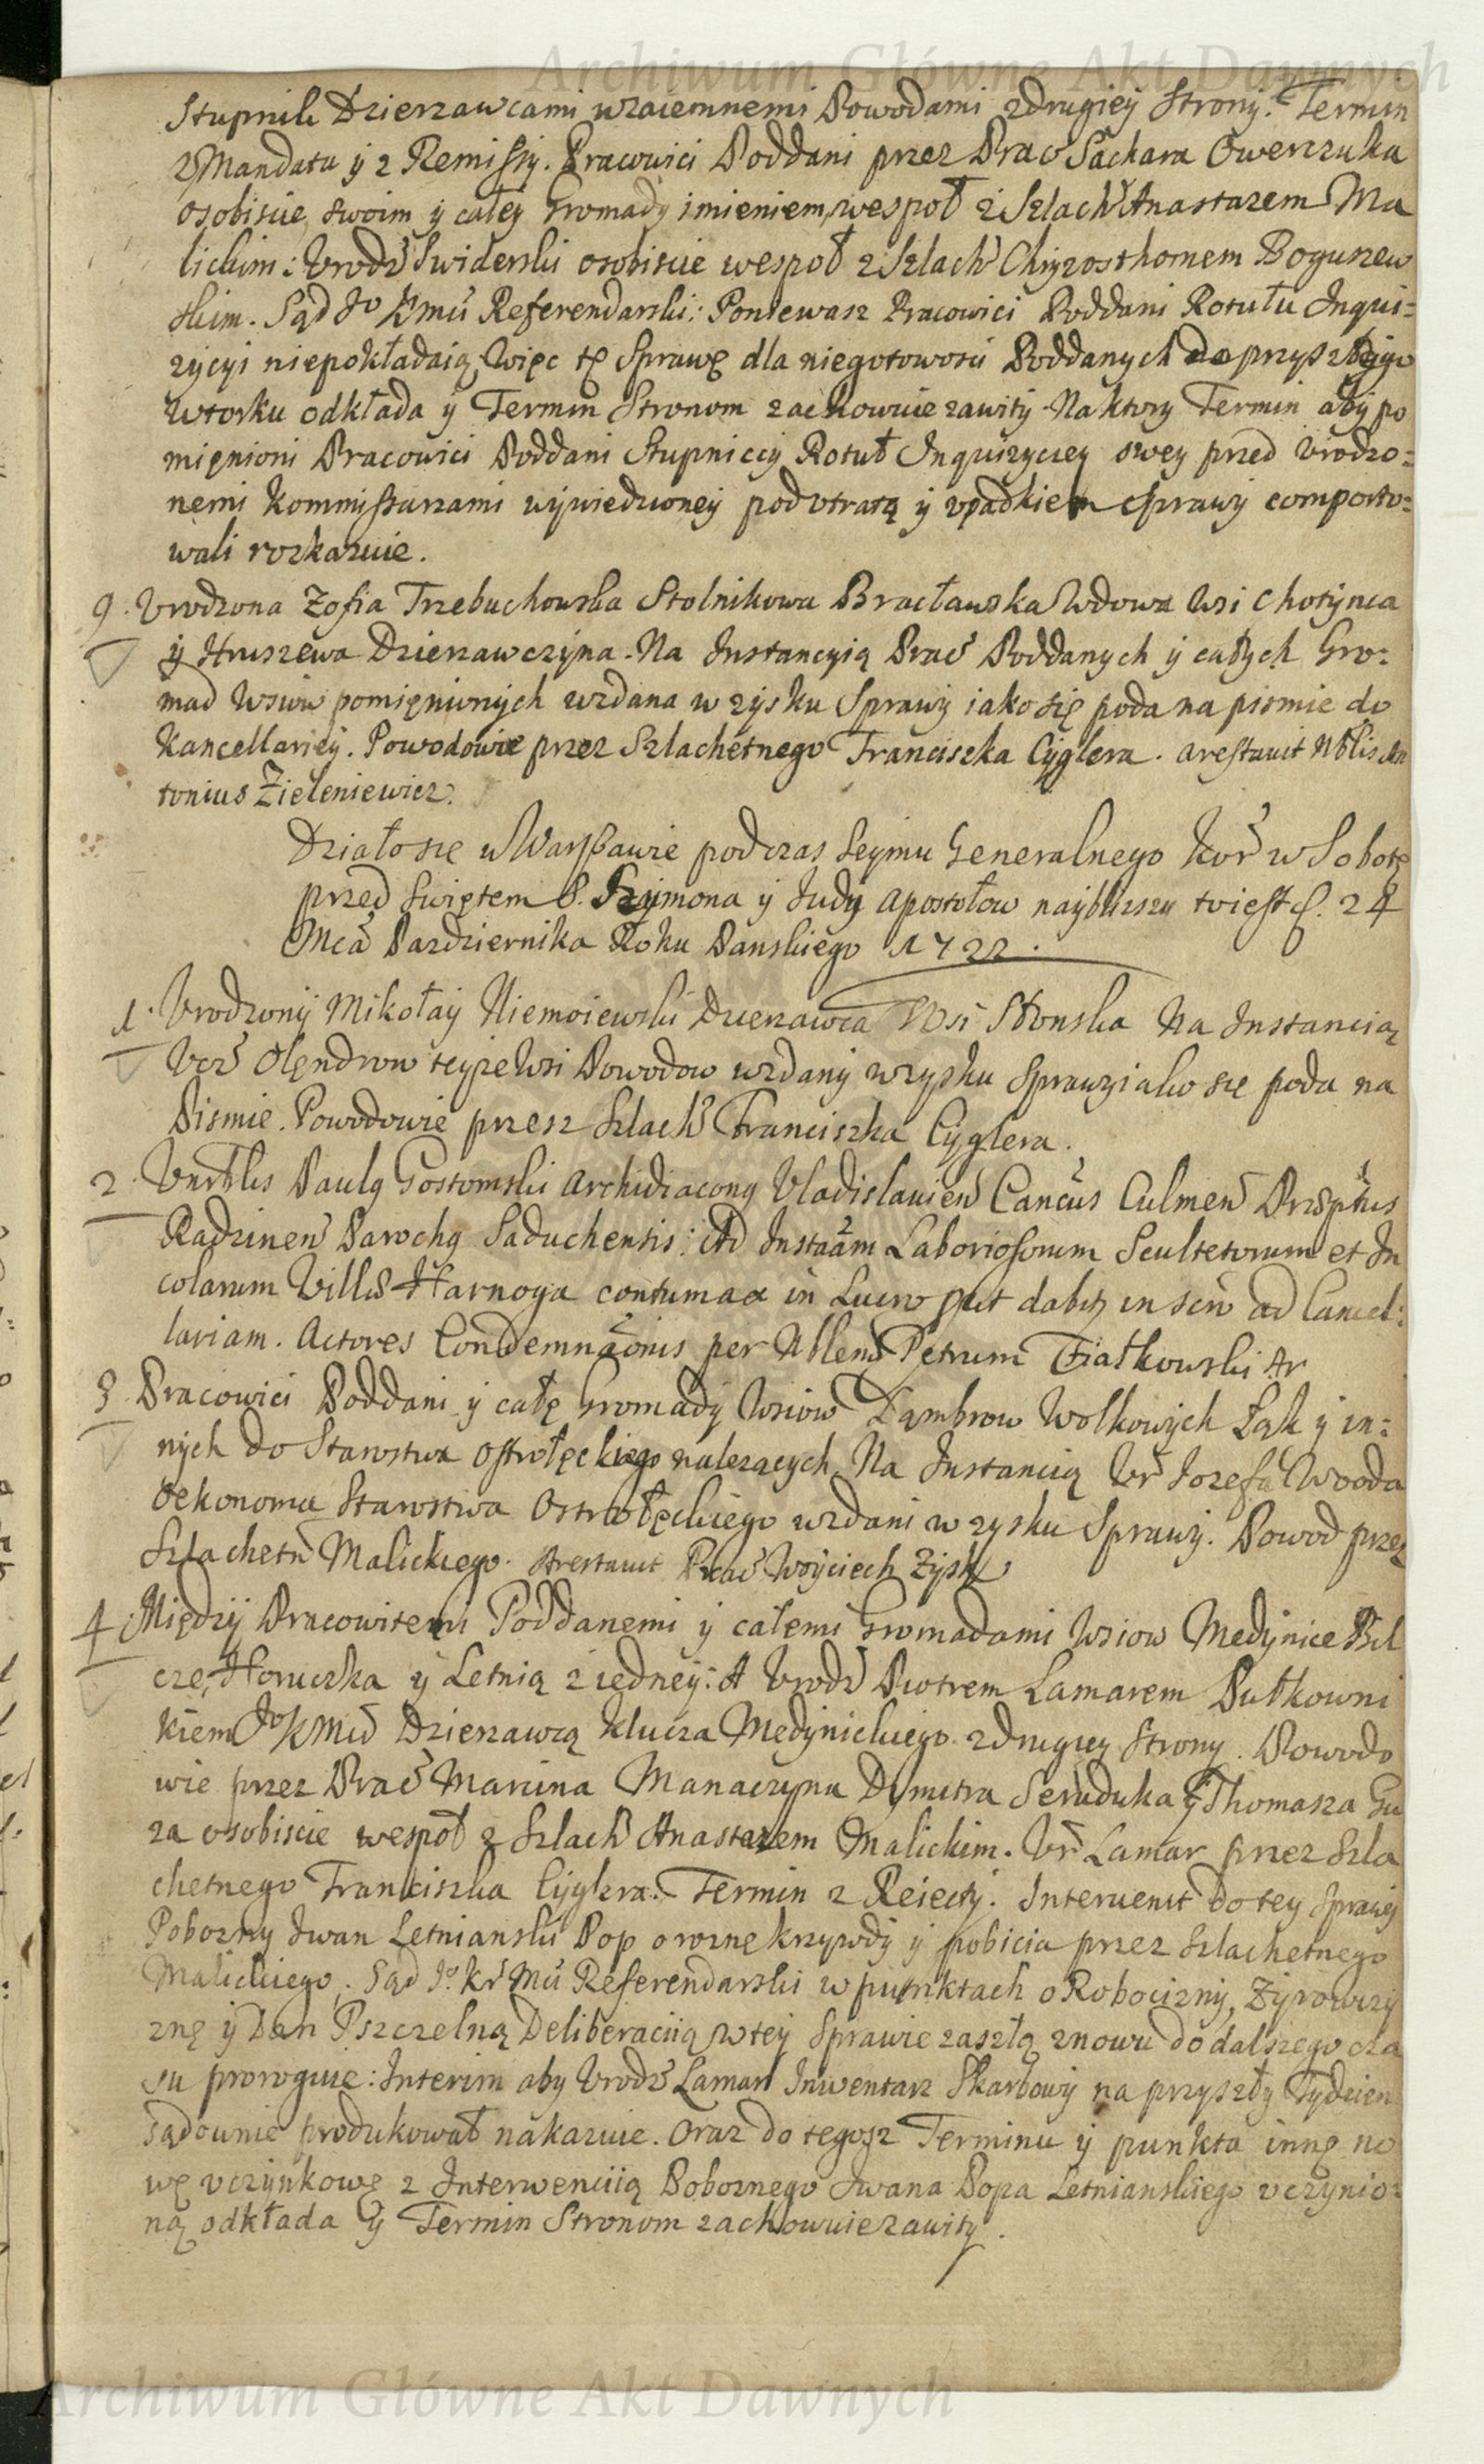 Archiwum Główne Akt Dawnych
Stupnik Dzierzawcami wzaiemnemi Powodami z drugiey Strony. Termin
z Mandatu y z Remissy. Pracowici Poddani przez Prac Sachara Owerczuka
osobiscie, swoim y całey Gromady imieniem, wespoł z Szlach Anastazem Ma
lickim: Vrodz Swiderski osobiscie wespoł z Szlach Chryzosthomem Boguszew
skim. Sąd Jo Kmci Referendarski: Poniewasz Pracowici Poddani Rotułu Inqui:
zycyi niepokładaią, Więc tę Sprawę dla niegotowosci Poddanych do przyszłego
wtorku odkłada y Termin Stronom zachowuie zawity. Na ktory Termin aby po
mięnioni Pracowici Poddani Stupniccy Rotuł Inquizycyey swey przed Vrodzo:
nemi Kommissarzami wywiedzioney pod vtratą y vpadkiem Sprawy comporto:
wali rozkazuie.
9. Vrodzona Zofia Trzebuchowska Stolnikowa Bracławska Wdowa Wsi Chotynca
y Hruszewa Dzierzawczyna. Na Instancyią Prac Poddanych y całych Gro:
mad Wsiow pomięnionych wzdana w zysku Sprawy iako się poda na pismie do
Kancellariey. Powodowie przez Szlachetnego Franciszka Cyglera. arestavit Nblis An
tonius Zieleniewicz.
Działo się w Warszawie podczas Seymu Generalnego Kor w Sobotę
przed Swiętem S. Szymona y Judy Apostołow nayblizszą to iest d. 24
Mca Pazdziernika Roku Panskiego 1722.
1. Vrodzony Mikołay Niemoiewski Dzierzawca Wsi Słonska Na Instancią
Vcz Olęndrow teyze Wsi Powodow wzdany w zysku Sprawy iako się poda na
Pismie. Powodowie przesz Szlach Franciszka Cyglera.
2. Vnrblis Paulq Gostomski Archidiaconq Vladislavien Cancus Culmen Przptus
Radzinen Parochq Saduchensis: Ad Instaam Laboriosorum Scultetorum et In
colarum Villae Harnoga contumax in Lucro put dabitz in scr ad Cancel:
lariam. Actores Condemnaonis per Nblem Petrum Fiałkowski Ar
3. Pracowici Poddani y całę Gromady Wsiow Dąmbrow Wolkowych Łąk y in:
nych do Starostwa Ostrołęckiego nalezących. Na Instancią Vr Jozefa Wooda
Oekonoma Starostwa Ostrołęckiego wzdani w zysku Sprawy. Powod przez
Szlachetn Malickiego. Arestavit Prac Woyciech Zysk
4. Między Pracowitemi Poddanemi y całemi Gromadami Wsiow Medynice Bil
cze, Horucka y Letnią z iedney: A Vrodz Piotrem Lamarem Pułkowni
kiem Jo Kmci Dzierzawcą Klucza Medynickiego z drugiey Strony. Powodo
wie przez Prac Marcina Manaczyna Dymitra Seruduka y Thomasza Gu
za osobiscie wespoł z Szlach Anastazem Malickim. Vr Lamar przez Szla
chetnego Franciszka Cyglera. Termin z Reiecty. Intervenit do tey Sprawy
Pobozny Iwan Letnianski Pop o rozne krzywdy y pobicia przez Szlachetnego
Malickiego. Sąd Jo Kr Mci Referendarski w punktach o Robocizny, Zyrowszy
znę y Dan Pszczelną Deliberacią w tey Sprawie zaszłą znowu do dalszego cza
su proroguie: Interim aby Vrodz Lamar Inwentarz Skarbowy na przyszły Tydzien
sądownie produkował nakazuie. Oraz do tegosz Terminu y punkta innę no
wę vczynkowę z Interwencią Poboznego Iwana Popa Letnianskiego vczynio:
ną odkłada y Termin Stronom zachowuie zawity.
Archiwum Główne Akt Dawnych